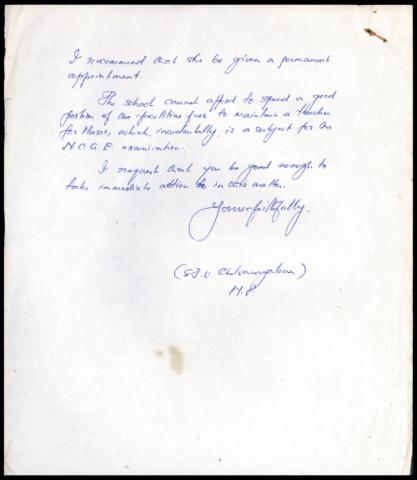 I recommend that she be given a permanent
appointment.
The school cannot afford to spend a good
portion of the facilities fees to maintain a teacher
for Music, which, incidentally, is a subject for the
N.C.G.E. examination.
I request that you be good enough to
take immediate action to in this matter.
Yours faithfully,
(S.J.V. Chelvanayakam)
M.P.